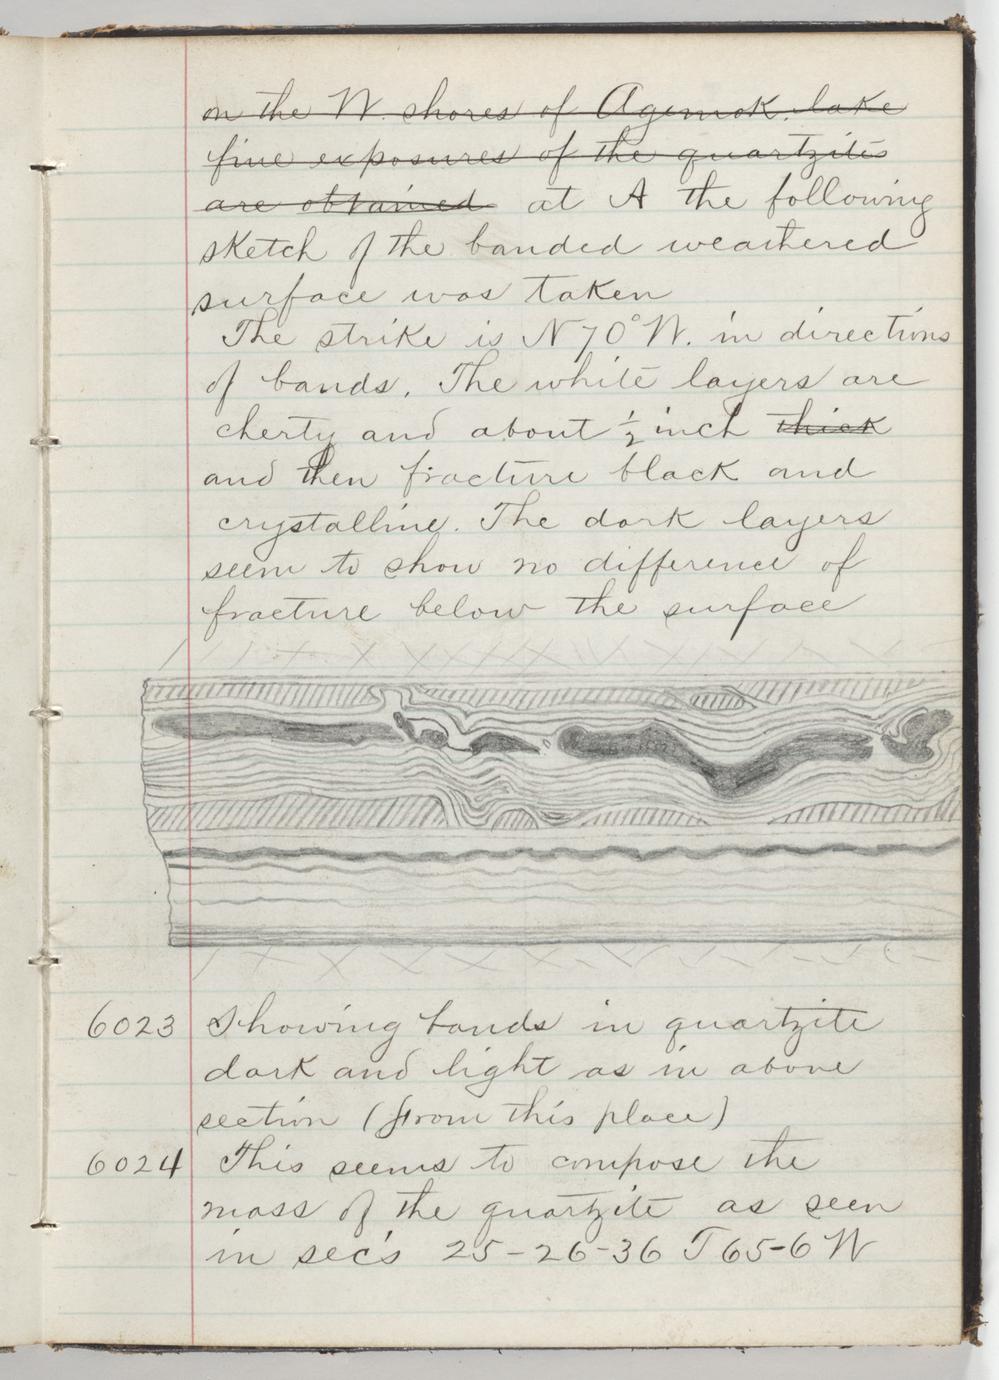 on the W. shores of Agamok lake
fine exposures of the quartzites
are obtained at A the following
sketch of the banded weathered
surface was taken
The strike is N70°W. in directions
of bands. The white layers are
cherty and about ½ inch thick
and then fracture black and
crystalline. The dark layers
seem to show no difference of
fracture below the surface
6023 Showing bands in quartzite
dark and light as in above
section (from this place)
6024 This seems to compose the
mass of the quartzite as seen
in sec's 25-26-36 T65-6W